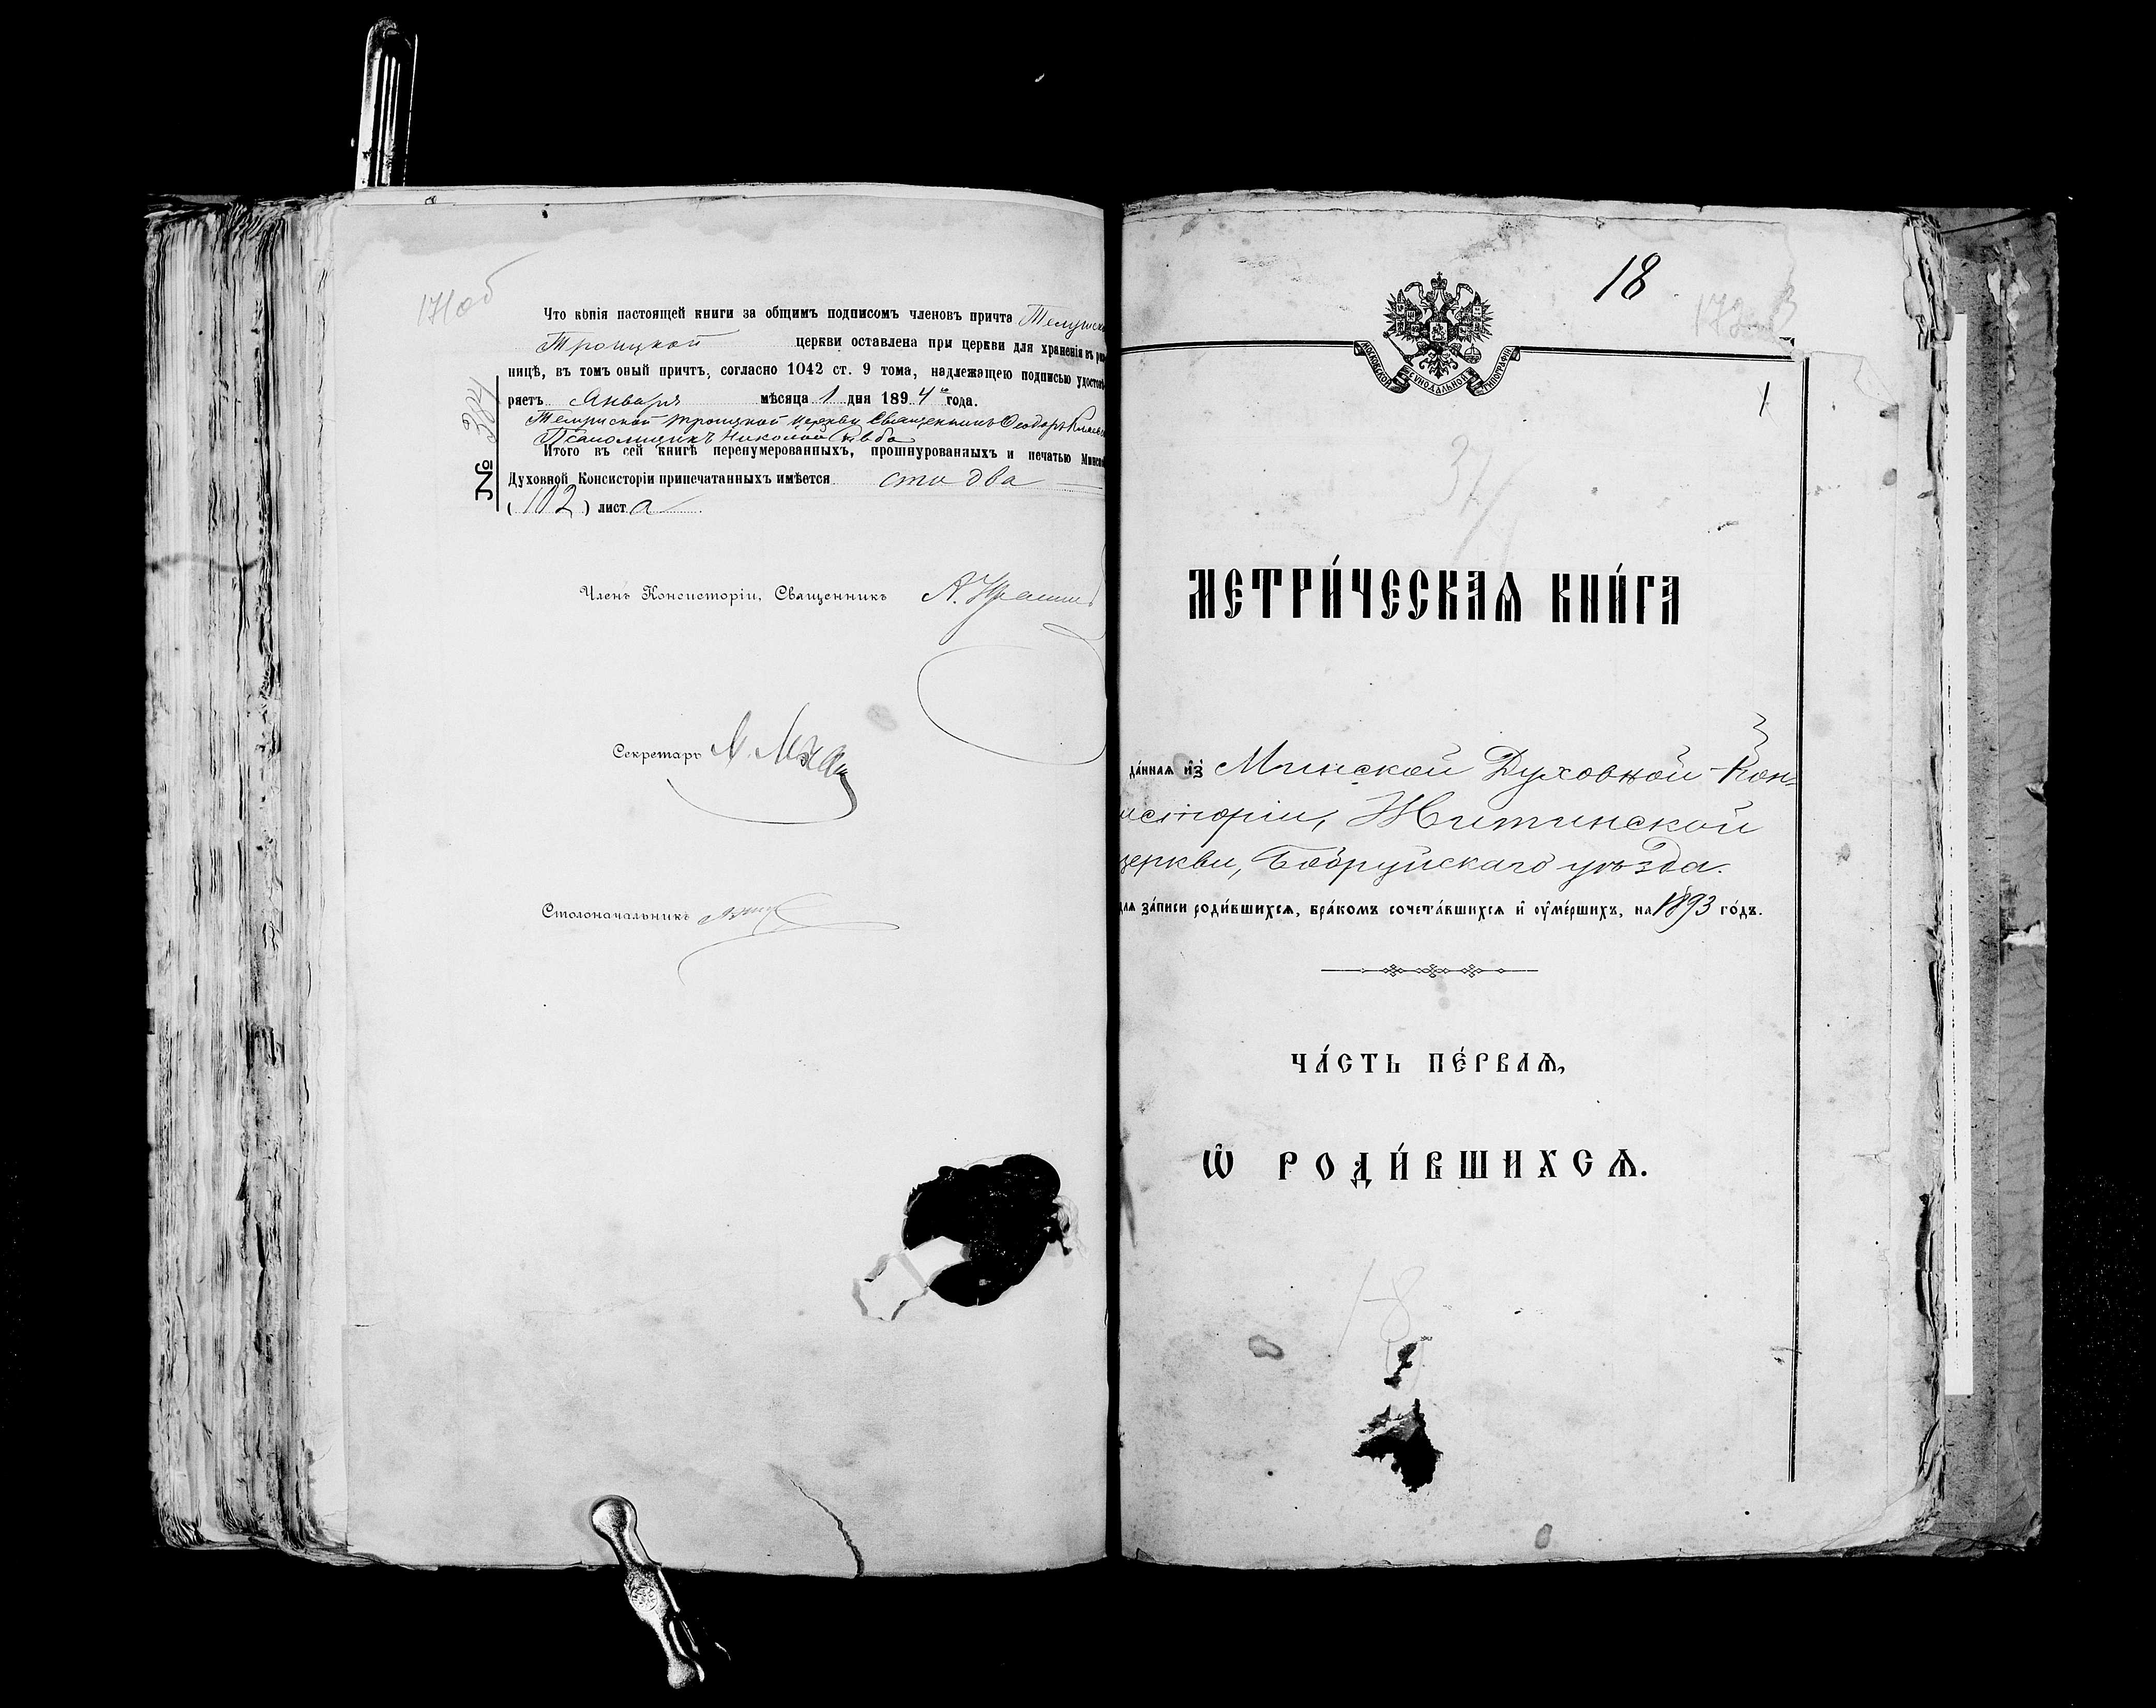 171об
Что копія настоящей книги за общимъ подписомъ членовъ причта Телушско
Троицкой церкви оставлена при церкви для храненія въ риз
ницѣ, въ томъ оный причтъ, согласно 1042 ст. 9 тома, надлежащею подписью удостовѣ
ряетъ Января мѣсяца 1 дня 1894 го года.
Телушской Троицкой церкви Священникъ Ѳеодоръ
Псаломщикъ Николай
Итого въ сей книгѣ перенумерованныхъ, прошнурованныхъ и печатью Минской
Духовной Консисторіи припечатанныхъ имѣется сто два
(102) листа
№ 384
Членъ Консисторіи, Священникъ А.
Секретарь
Столоначальникъ
18
1
МОСКОВСКОЙ СѴНОДАЛЬНОЙ ТИПОГРАФІИ
МЕТРИ́ЧЕСКАѦ КНИ́ГА
да́ннаѧ и҆з̾ Минской Духовной Кон-
систоріи, Житинской
церкви, Бобруйскаго уѣзда.
для за́писи роди́вшихсѧ, бра́комъ сочета́вшихсѧ и҆ ᲂу҆ме́ршихъ, на 1893 го́дъ.
ЧА́СТЬ ПЕ́РВАѦ,
Ѡ҆ РОДИ́ВШИХСѦ.
18